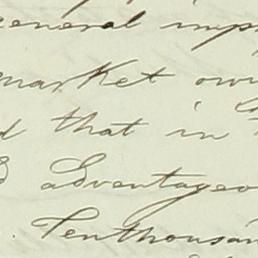 general imp
market owi
d that in
advantageo
Tenthousan